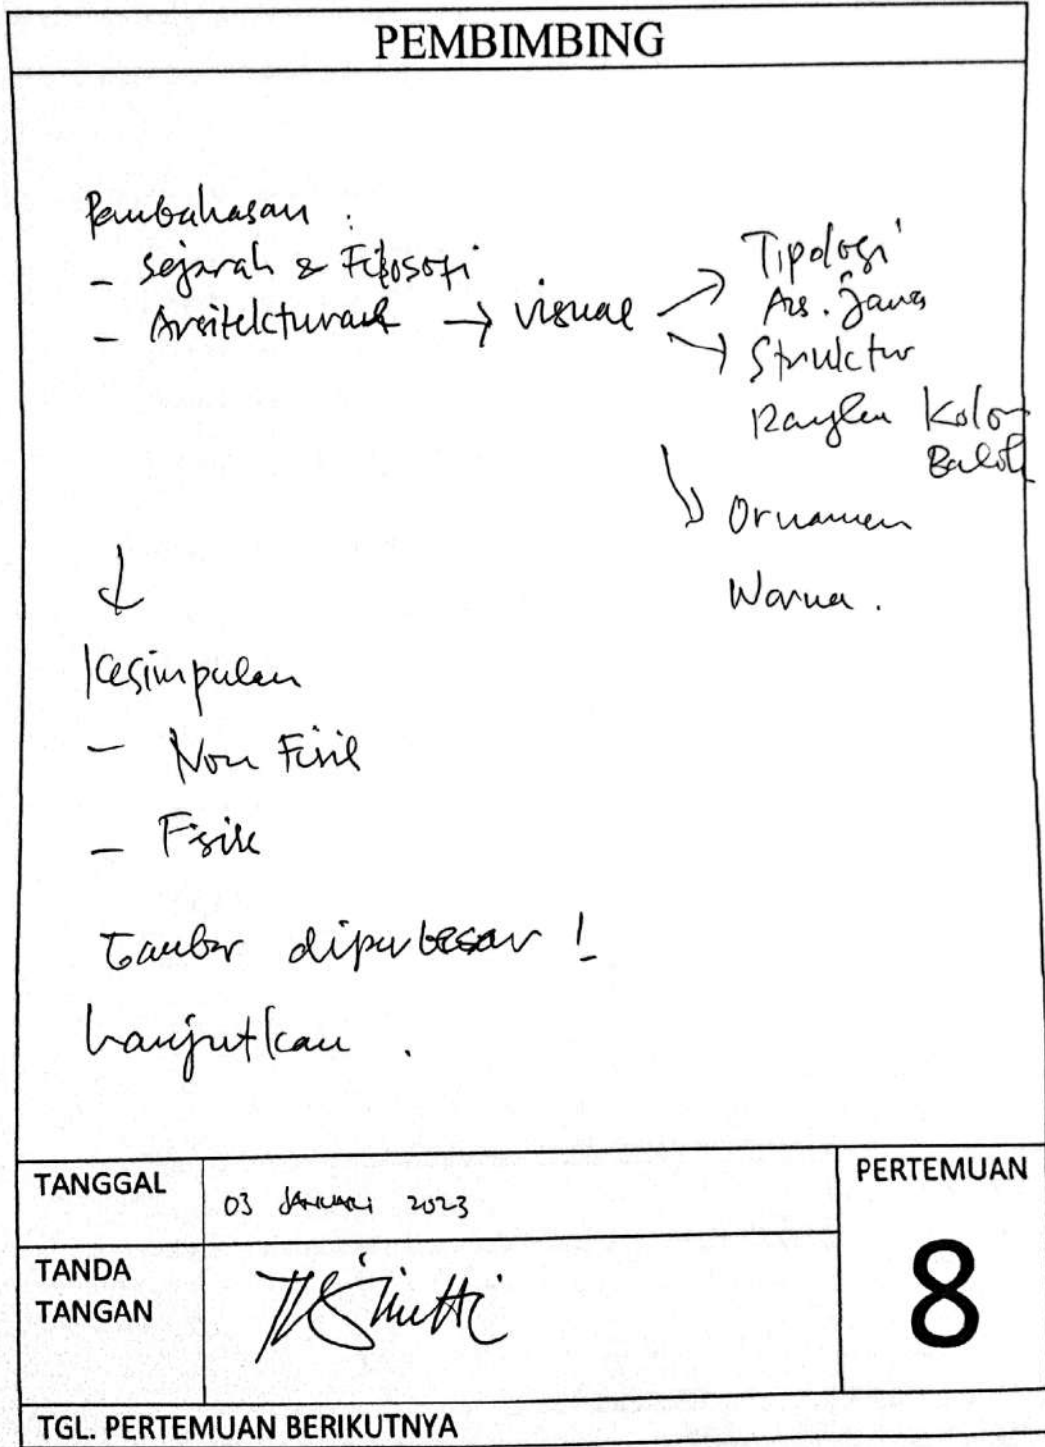 PEMBIMBING
Pembahasan :
- Sejarah & Filosofi
- Arsitektural → visual → Tipologi
Ars. Jawa
→ Struktur
Rangka Kolom
Balok
→ Ornamen
Warna.
↓
Kesimpulan
- Non Fisik
- Fisik
Gambar diperbesar !
Lanjutkan .
TANGGAL 03 JANUARI 2023
PERTEMUAN
8
TANDA
TANGAN
TGL. PERTEMUAN BERIKUTNYA